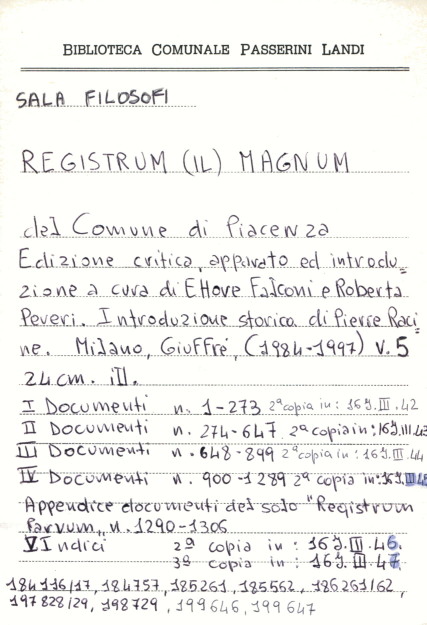 BIBLIOTECA COMUNALE PASSERINI LANDI
SALA FILOSOFI
REGISTRUM (IL) MAGNUM
del Comune di Piacenza
Edizione critica, apparato ed introdu=
zione a cura di Ettore Falconi e Roberta
Peveri. Introduzione storica di Pierre Raci=
ne. Milano, Giuffré, (1984-1997) V. 5
24 cm. ill.
I Documenti n. 1-273 2ª copia in: 16 J. III. 42
II Documenti n. 274-647 2ª copia in: 16 J. III. 43
III Documenti n. 648-899 2ª copia in: 16 J. III. 44
IV Documenti n. 900-1289 2ª copia in: 16 J. III
Appendice documenti del solo "Registrum
Parvum" n. 1290-1306
V Indici 2ª copia in: 16 J. III. 46.
3ª copia in: 16 J. III. 47
184116/17, 184757, 185261, 185562, 186261/62,
197828/29, 198729, 199646, 199647